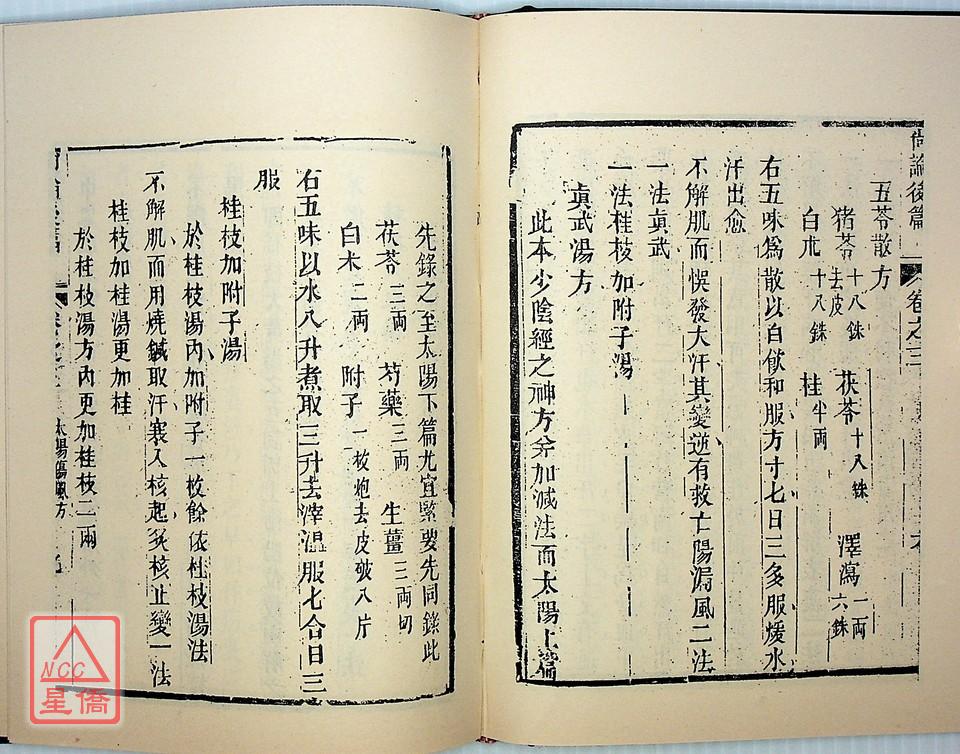 尚論後篇 卷之三
五苓散方
猪苓十八銖去皮 茯苓十八銖 澤瀉一兩六銖
白朮十八銖 桂半兩
右五味為散以白飲和服方寸七日三多服煖水
汗出愈
不解肌而悞發大汗其變逆有救亡陽漏風二法
一法真武
一法桂枝加附子湯
真武湯方
此本少陰經之神方并加減法而太陽上篇
先錄之至太陽下篇尤宜緊要先同錄此
茯苓三兩 芍藥三兩 生薑三兩切
白朮二兩 附子一枚炮去皮破八片
右五味以水八升煮取三升去滓溫服七合日三
服
桂枝加附子湯
於桂枝湯內加附子一枚餘依桂枝湯法
不解肌而用燒鍼取汗寒入核起灸核止變一法
桂枝加桂湯更加桂
於桂枝湯方內更加桂枝二兩
太陽傷風方
NCC
星僑